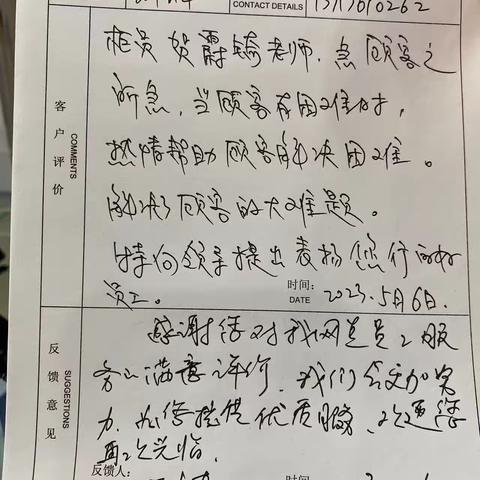 CONTACT DETAILS
客户评价
COMMENTS
柜员贺爵绮老师.急顾客之
所急,当顾客有困难时,
热情帮助顾客解决困难。
解决了顾客的大难题。
特向领导提出表扬您行的好
员工。
时间:
DATE 2023.5月6日.
反馈意见
SUGGESTIONS
感谢您对我网点员工服
务的满意评价.我们会更加努
力.为您提供优质服务,欢迎您
再次光临.
反馈人:
时间